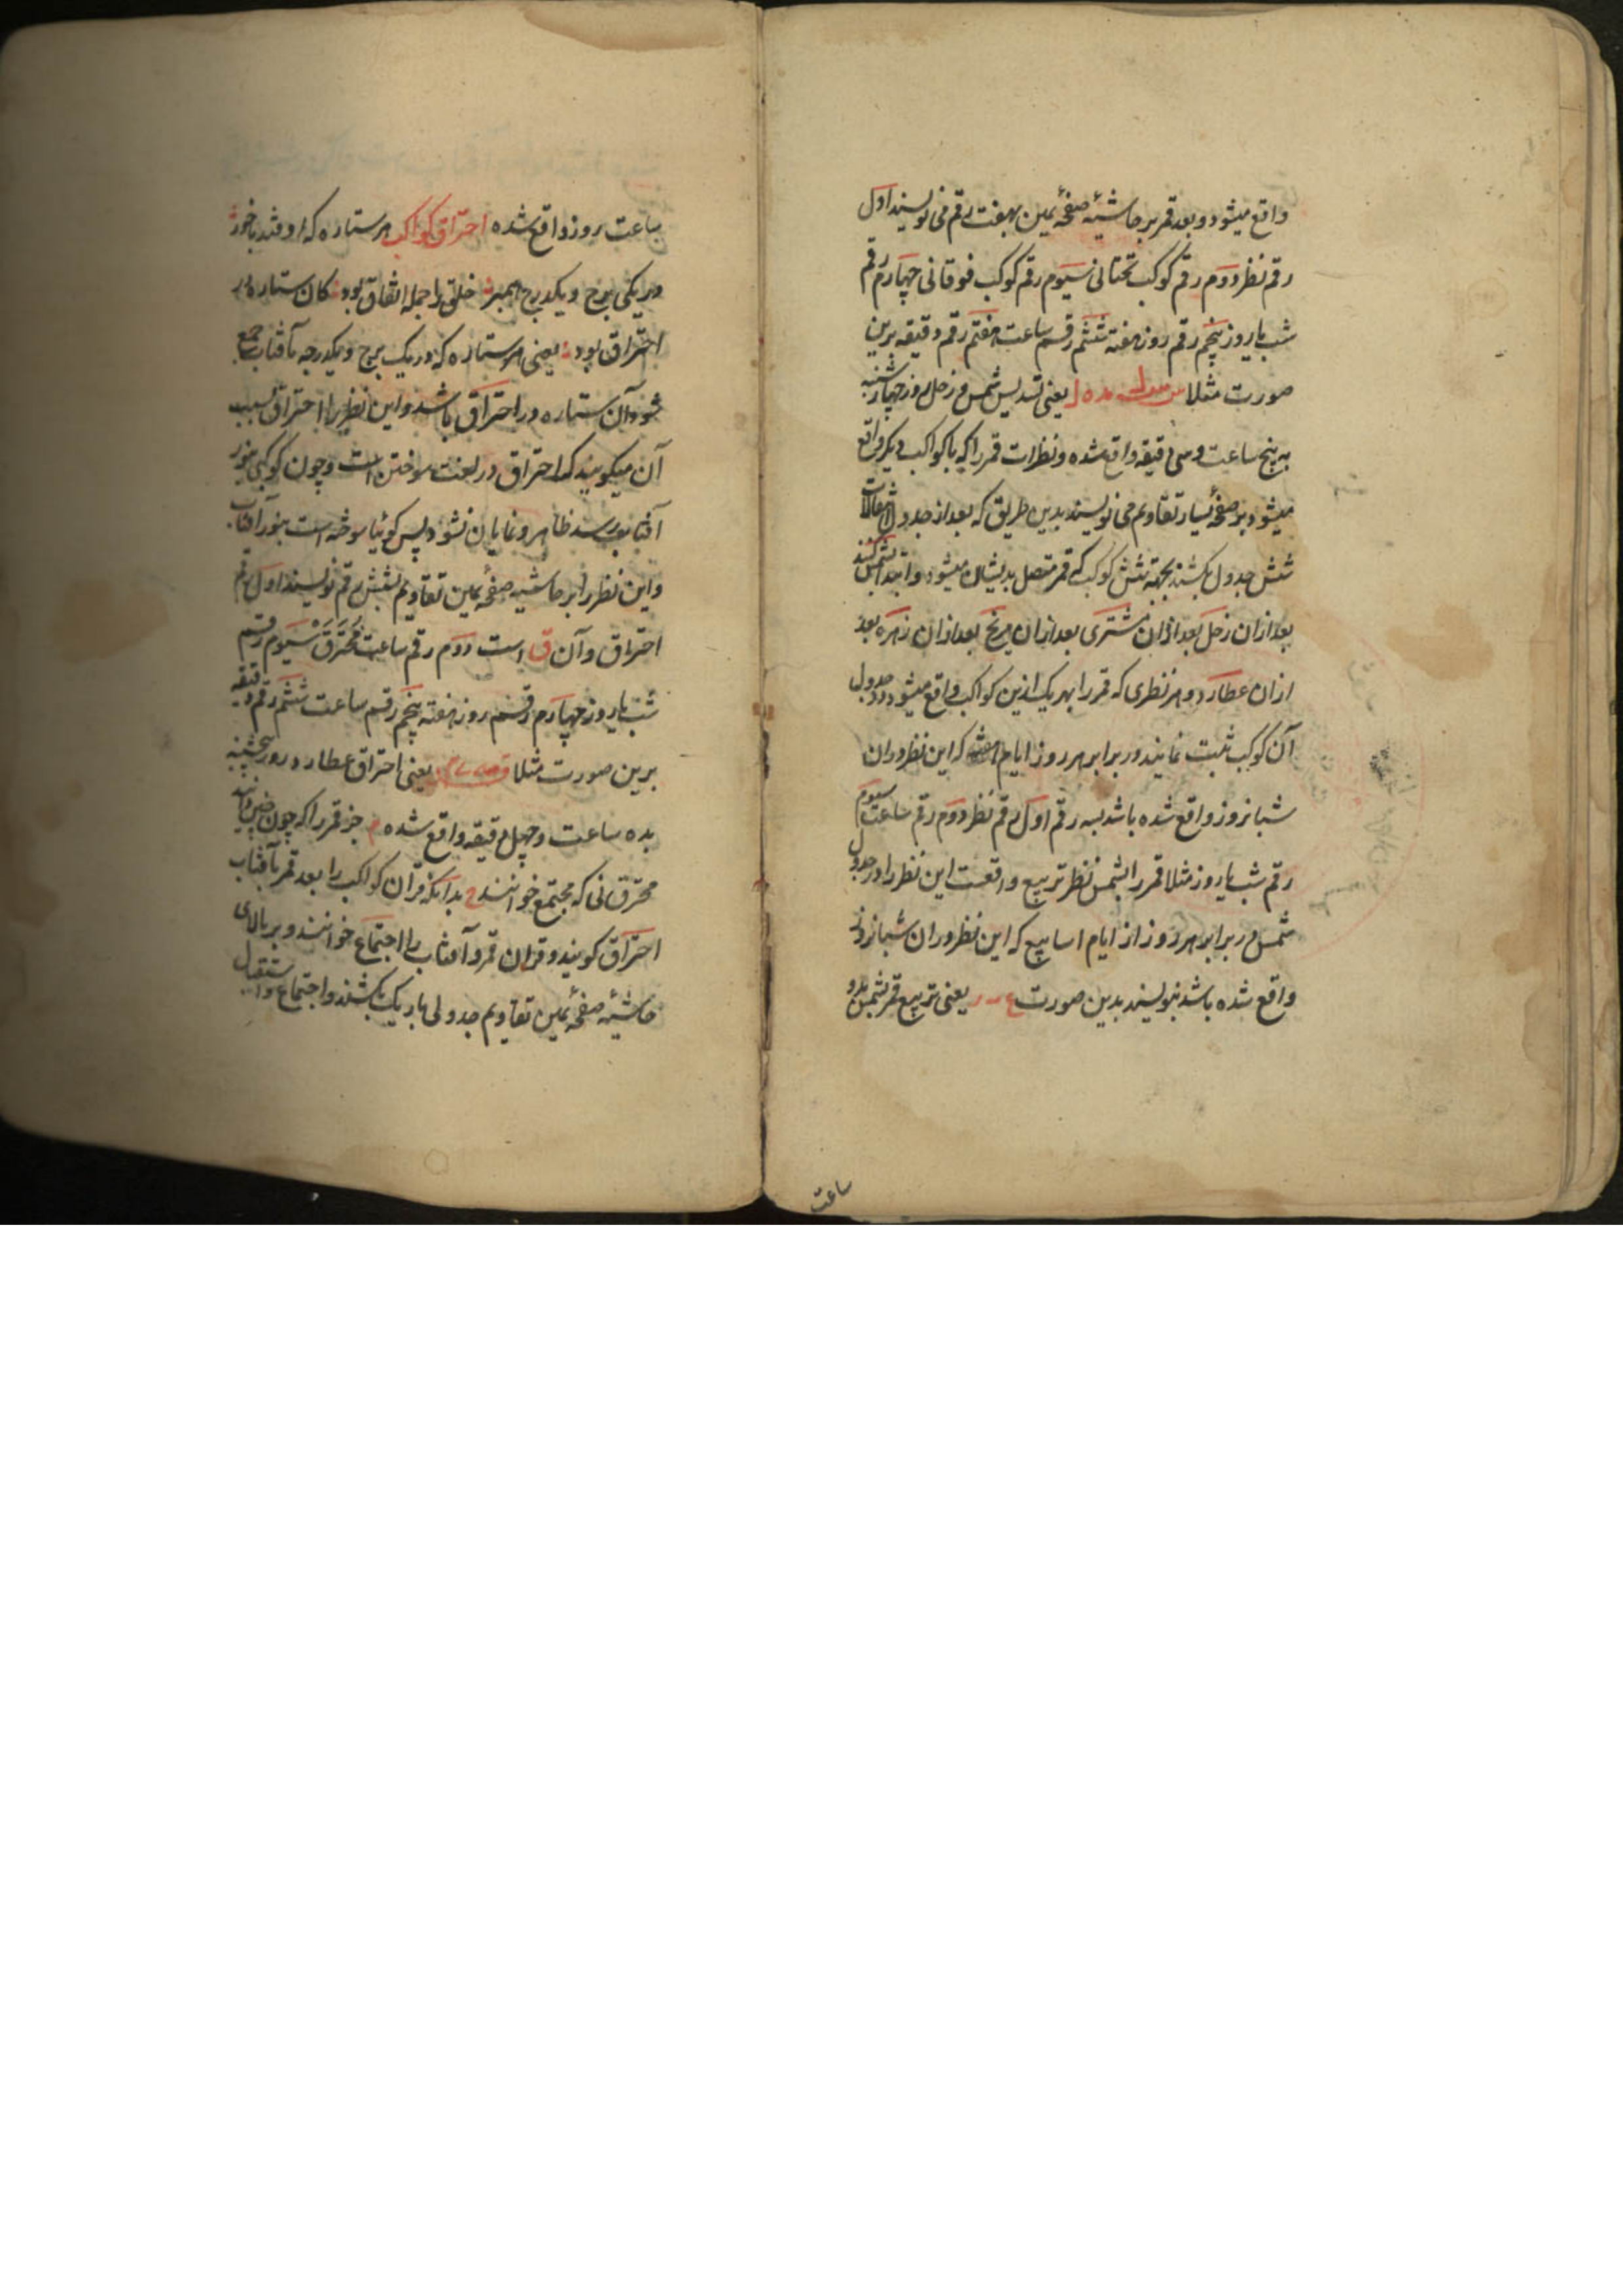 واقع میشود و بعد قمر بر حاشیهٔ صفحهٔ یمین بهفت رقم می نویسند اول
رقم نظر دوم رقم کوکب تحتانی سیوم رقم کوکب فوقانی چهارم رقم
شب یا روز پنجم رقم روز هفته ششم رقم ساعت هفتم رقم دقیقه برین
صورت مثلا یعنی تسدیس شمس و زحل روز چهارشنبه
به پنج ساعت و سی دقیقه واقع شده و نظرات قمر را که با کواکب دیگر واقع
میشود بر صفحهٔ یسار تقاویم می نویسند بدین طریق که بعد از جدول انتقالات
شش جدول بکشند بجهة شش کوکب که قمر متصل بدیشان میشود و ابتدا بشمس کنند
بعد ازان زحل بعد ازان مشتری بعد ازان مریخ بعد ازان زهره بعد
ازان عطارد و هر نظری که قمر را بهر یک ازین کواکب واقع میشود در جدول
آن کوکب ثبت نمایند در برابر هر روز ایام هفته که این نظر دران
شبانروز واقع شده باشد بسه رقم اول رقم نظر دوم رقم ساعت سیوم
رقم شب یا روز مثلا قمر را بشمس نظر تربیع واقعست این نظر را در جدول
شمس در برابر هر روز از ایام اسابیع که این نظر دران شبانروزی
واقع شده باشد بنویسند بدین صورت یعنی تربیع قمر بشمس بدو
ساعت
ساعت روز واقع شده احتراق کواکب هر ستاره که اوفتد با خور
در یکی برج و یکدرج همبر خلق را جمله اتفاق بود کان ستاره در
احتراق بود یعنی هر ستاره که در یک برج و یکدرجه بآفتاب جمع
شود آن ستاره در احتراق باشد و این نظر را احتراق بسبب
آن میگویند که احتراق در لغت سوختن است و چون کوکبی بنور
آفتاب رسد ظاهر و نمایان نشود پس گوئیا سوخته است بنور آفتاب
و این نظر را بر حاشیه صفحهٔ یمین تقاویم بشش رقم نویسند اول رقم
احتراق و آن ق است دوم رقم ساعت مُحْتَرَق سیوم رقم
شب یا روز چهارم رقم روز هفته پنجم رقم ساعت ششم رقم دقیقه
برین صورت مثلا یعنی احتراق عطارد روز پنجشنبه
بده ساعت و چهل دقیقه واقع شده جز قمر را که چون چنین باشد
محترق نی که مجتمع خوانند بدانکه قران کواکب را بعد قمر بآفتاب
احتراق گویند و قران قمر و آفتاب را اجتماع خوانند و بر بالای
حاشیهٔ صفحهٔ یمین تقاویم جدولی باریک بکشند و اجتماع و استقبال